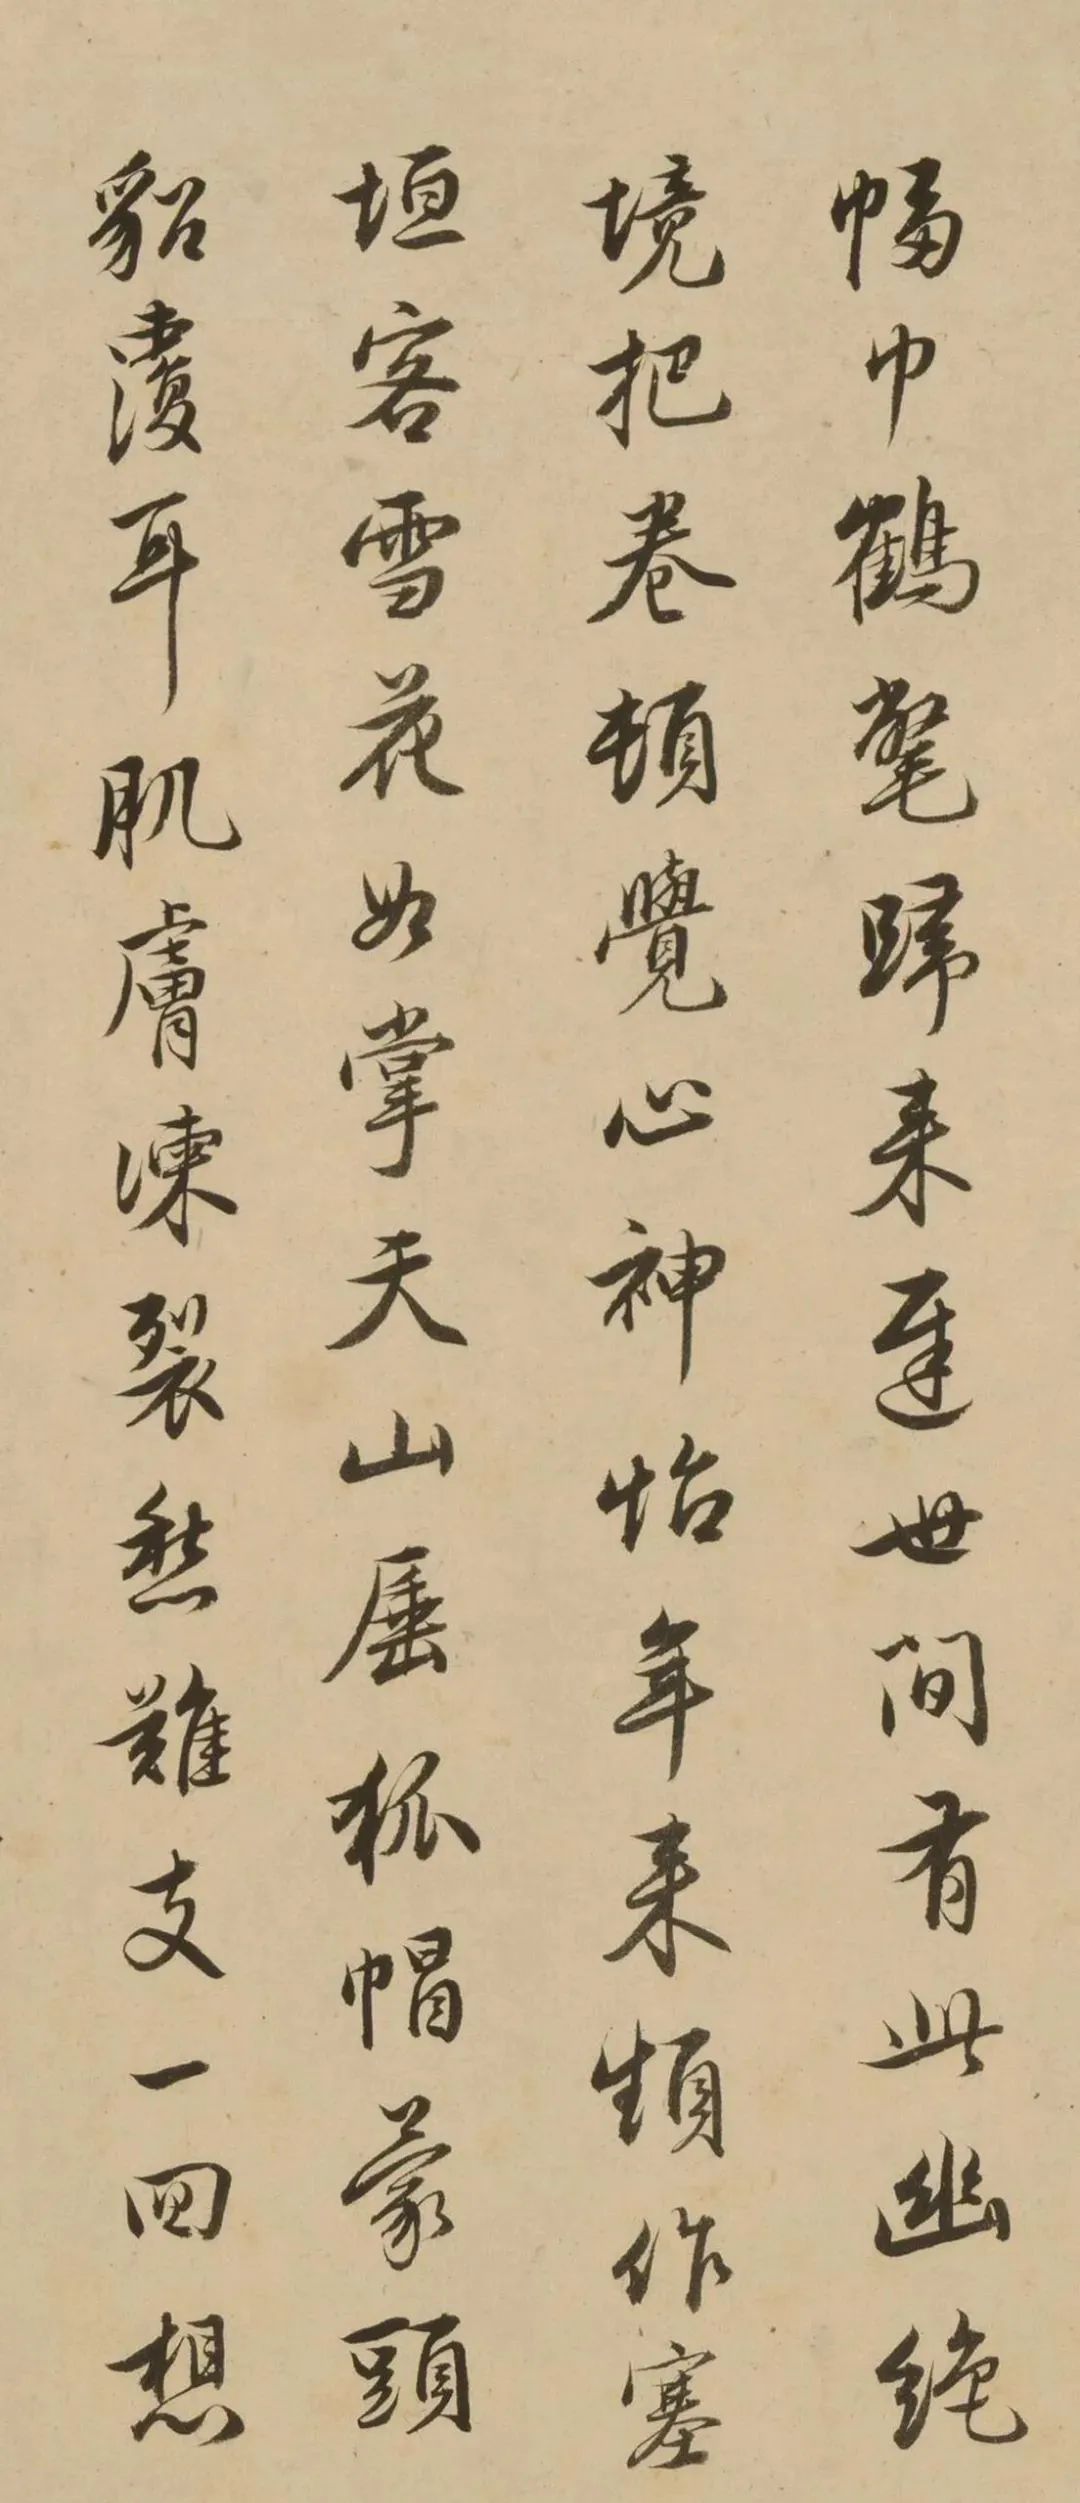 幅巾鶴氅歸来遲世間有此幽絶
境把卷頓覺心神怡年来頻作塞
垣客雪花如掌天山厜狐帽蒙頭
貂覆耳肌膚凍裂愁難支一回想